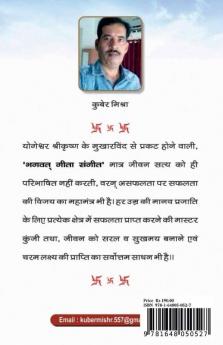 कुबेर मिश्रा
योगेश्वर श्रीकृष्ण के मुखारविंद से प्रकट होने वाली,
'भगवत् गीता संगीत' मात्र जीवन सत्य को ही
परिभाषित नहीं करती, वरन् असफलता पर सफलता
की विजय का महामंत्र भी है। हर उम्र की मानव प्रजाति
के लिए प्रत्येक क्षेत्र में सफलता प्राप्त करने की मास्टर
कुंजी तथा, जीवन को सरल व सुखमय बनाने एवं
चरम लक्ष्य की प्राप्ति का सर्वोत्तम साधन भी है॥
Price Rs 190.00
ISBN
978-1-64805-052-7
Email : kubermishr.557@gma
9 781648 050527